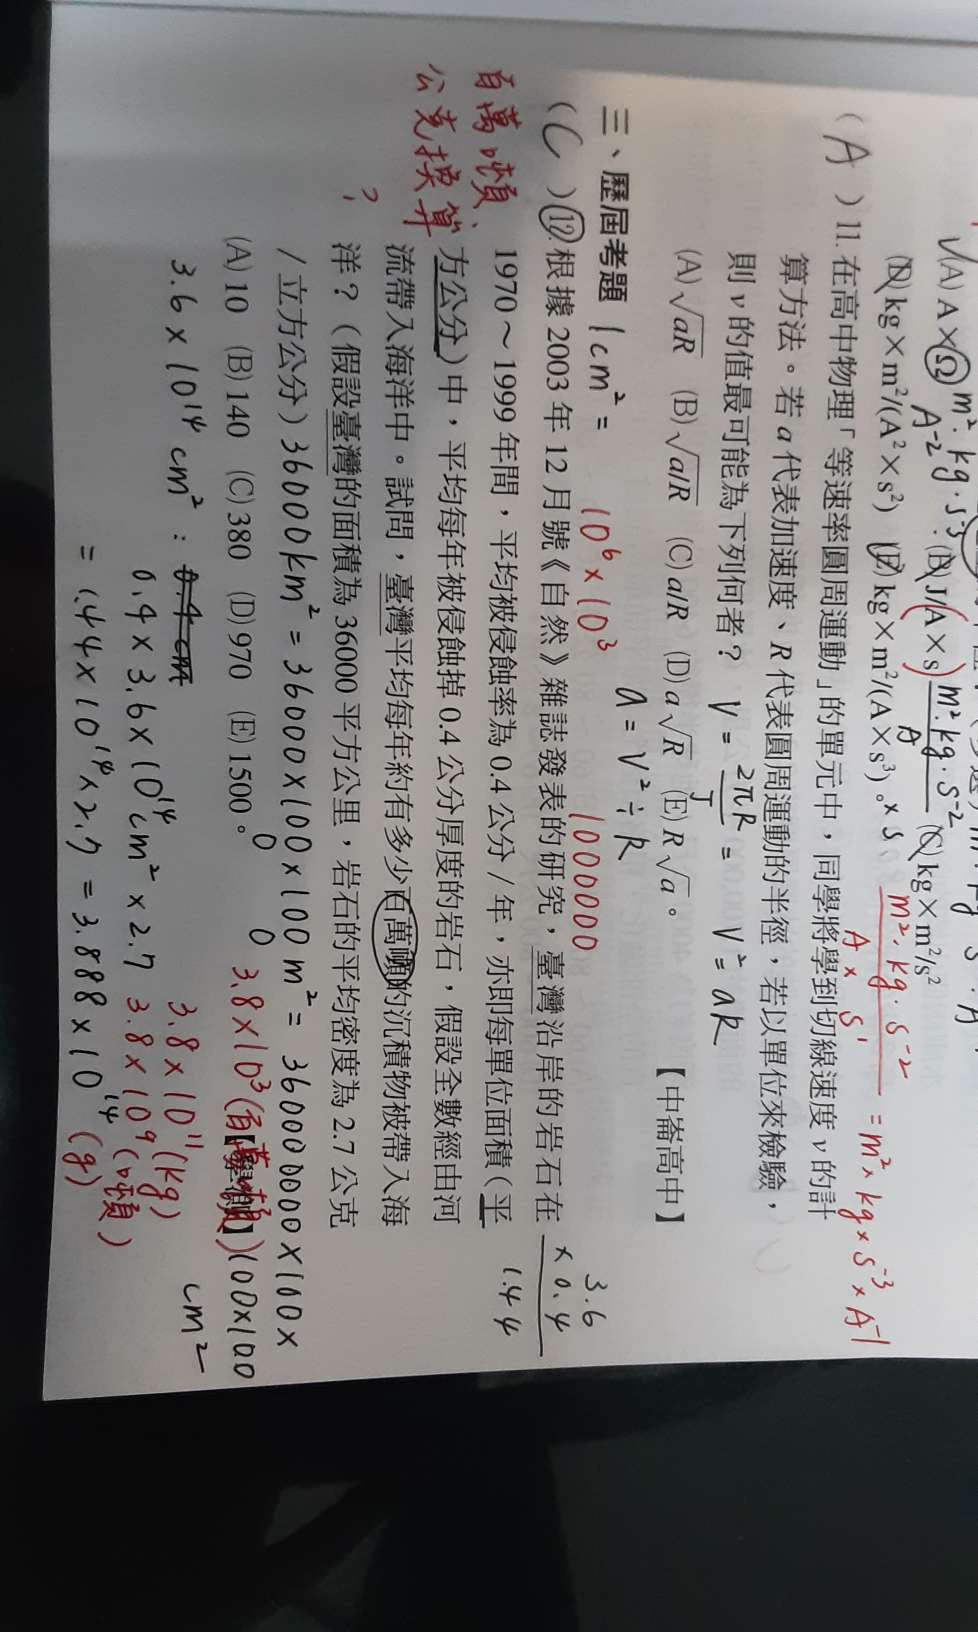 √(A) A×Ω m²·kg·s⁻³·A⁻² (B) J/(A×s) m²·kg·s⁻² (C) kg×m²/s²
(D) kg×m²/(A²×s²) (E) kg×m²/(A×s³)。
m²·kg·s⁻² / A×s¹ = m²×kg×s⁻³×A⁻¹
( A )11. 在高中物理「等速率圓周運動」的單元中，同學將學到切線速度 v 的計
算方法。若 a 代表加速度、R 代表圓周運動的半徑，若以單位來檢驗，
則 v 的值最可能為下列何者？ V = 2πR/T = V² = aR
(A)√aR (B)√a/R (C) a/R (D) a√R (E) R√a。 【中崙高中】
a = V² ÷ R
三、歷屆考題 1cm² =
10⁶ × 10³ 1000000
( C )12. 根據 2003 年 12 月號《自然》雜誌發表的研究，臺灣沿岸的岩石在
1970～1999 年間，平均被侵蝕率為 0.4 公分 / 年，亦即每單位面積（平
方公分）中，平均每年被侵蝕掉 0.4 公分厚度的岩石，假設全數經由河
流帶入海洋中。試問，臺灣平均每年約有多少百萬噸的沉積物被帶入海
洋？（假設臺灣的面積為 36000 平方公里，岩石的平均密度為 2.7 公克
/ 立方公分）36000km² = 36000×100×100 m² = 36000000×100×
(A)10 (B)140 (C)380 (D)970 (E)1500。
100×100
cm²
百萬噸、
公克換算
?
3.6
×0.4
1.44
3.6×10¹⁴ cm² :
0.4×3.6×10¹⁴cm²×2.7
= 1.44×10¹⁴×2.7 = 3.888×10¹⁴(g)
3.8×10¹¹(kg)
3.8×10⁹(噸)
3.8×10³(百萬噸)